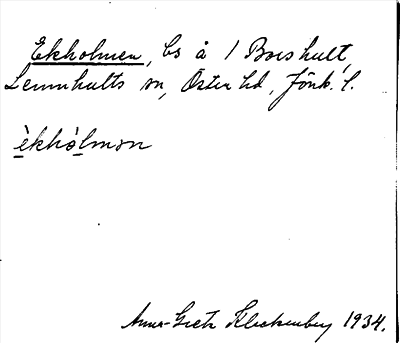 Ekholmen, bs å 1 Boeshult,
Lemnhults sn, Östra hd, Jönk. l.
èkhòlmən
Anna-Greta Kleckenberg 1934.